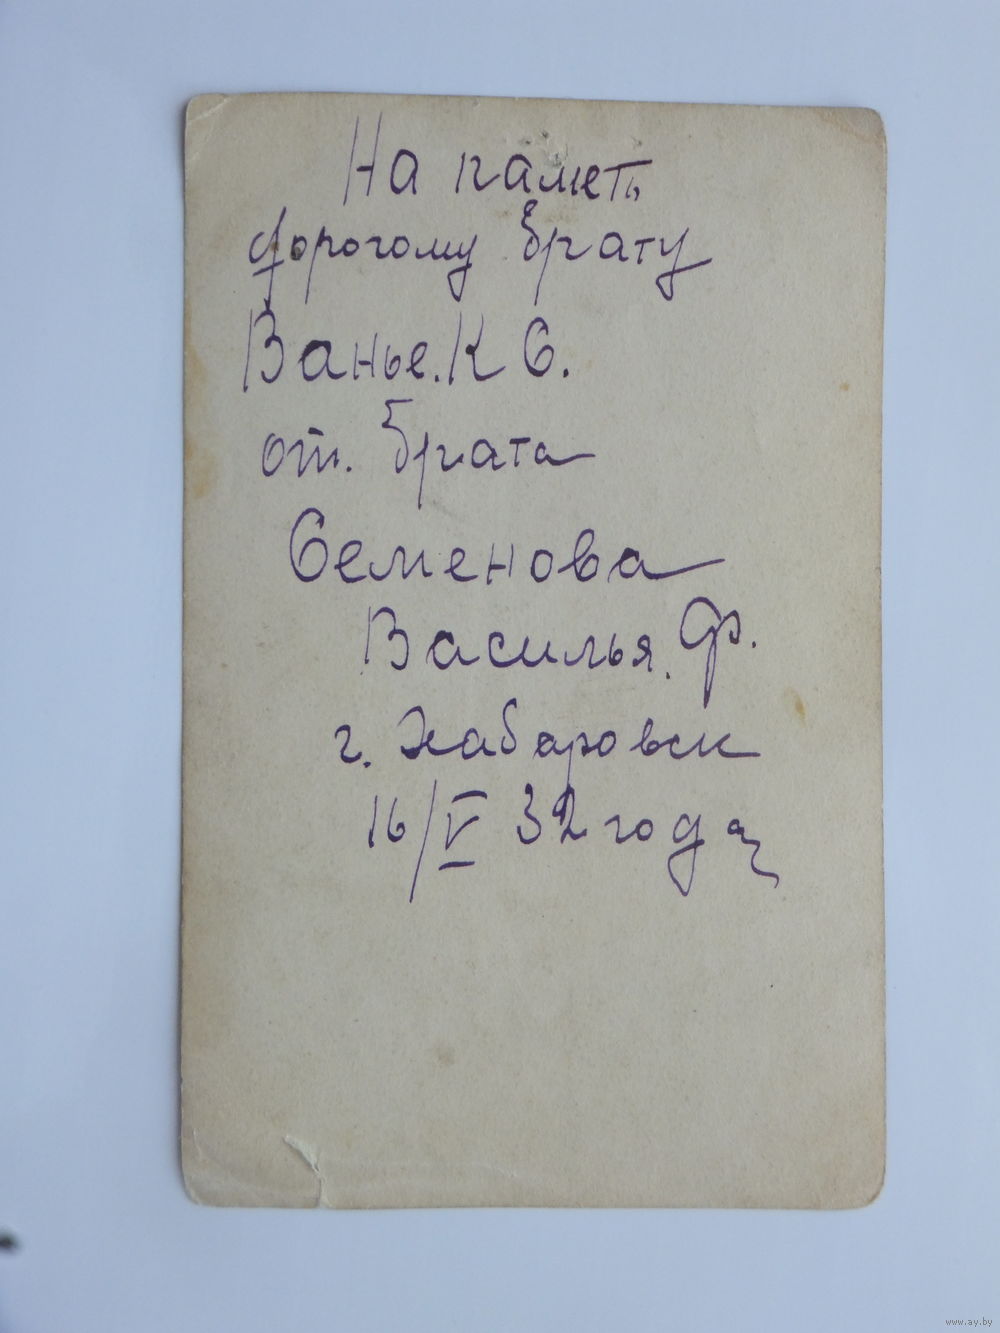 На паметь
дорогому брату
Ванье. К С.
от. брата
Семенова
Василья. Ф.
г. Хабаровск
16/V 32 года
www.ay.by